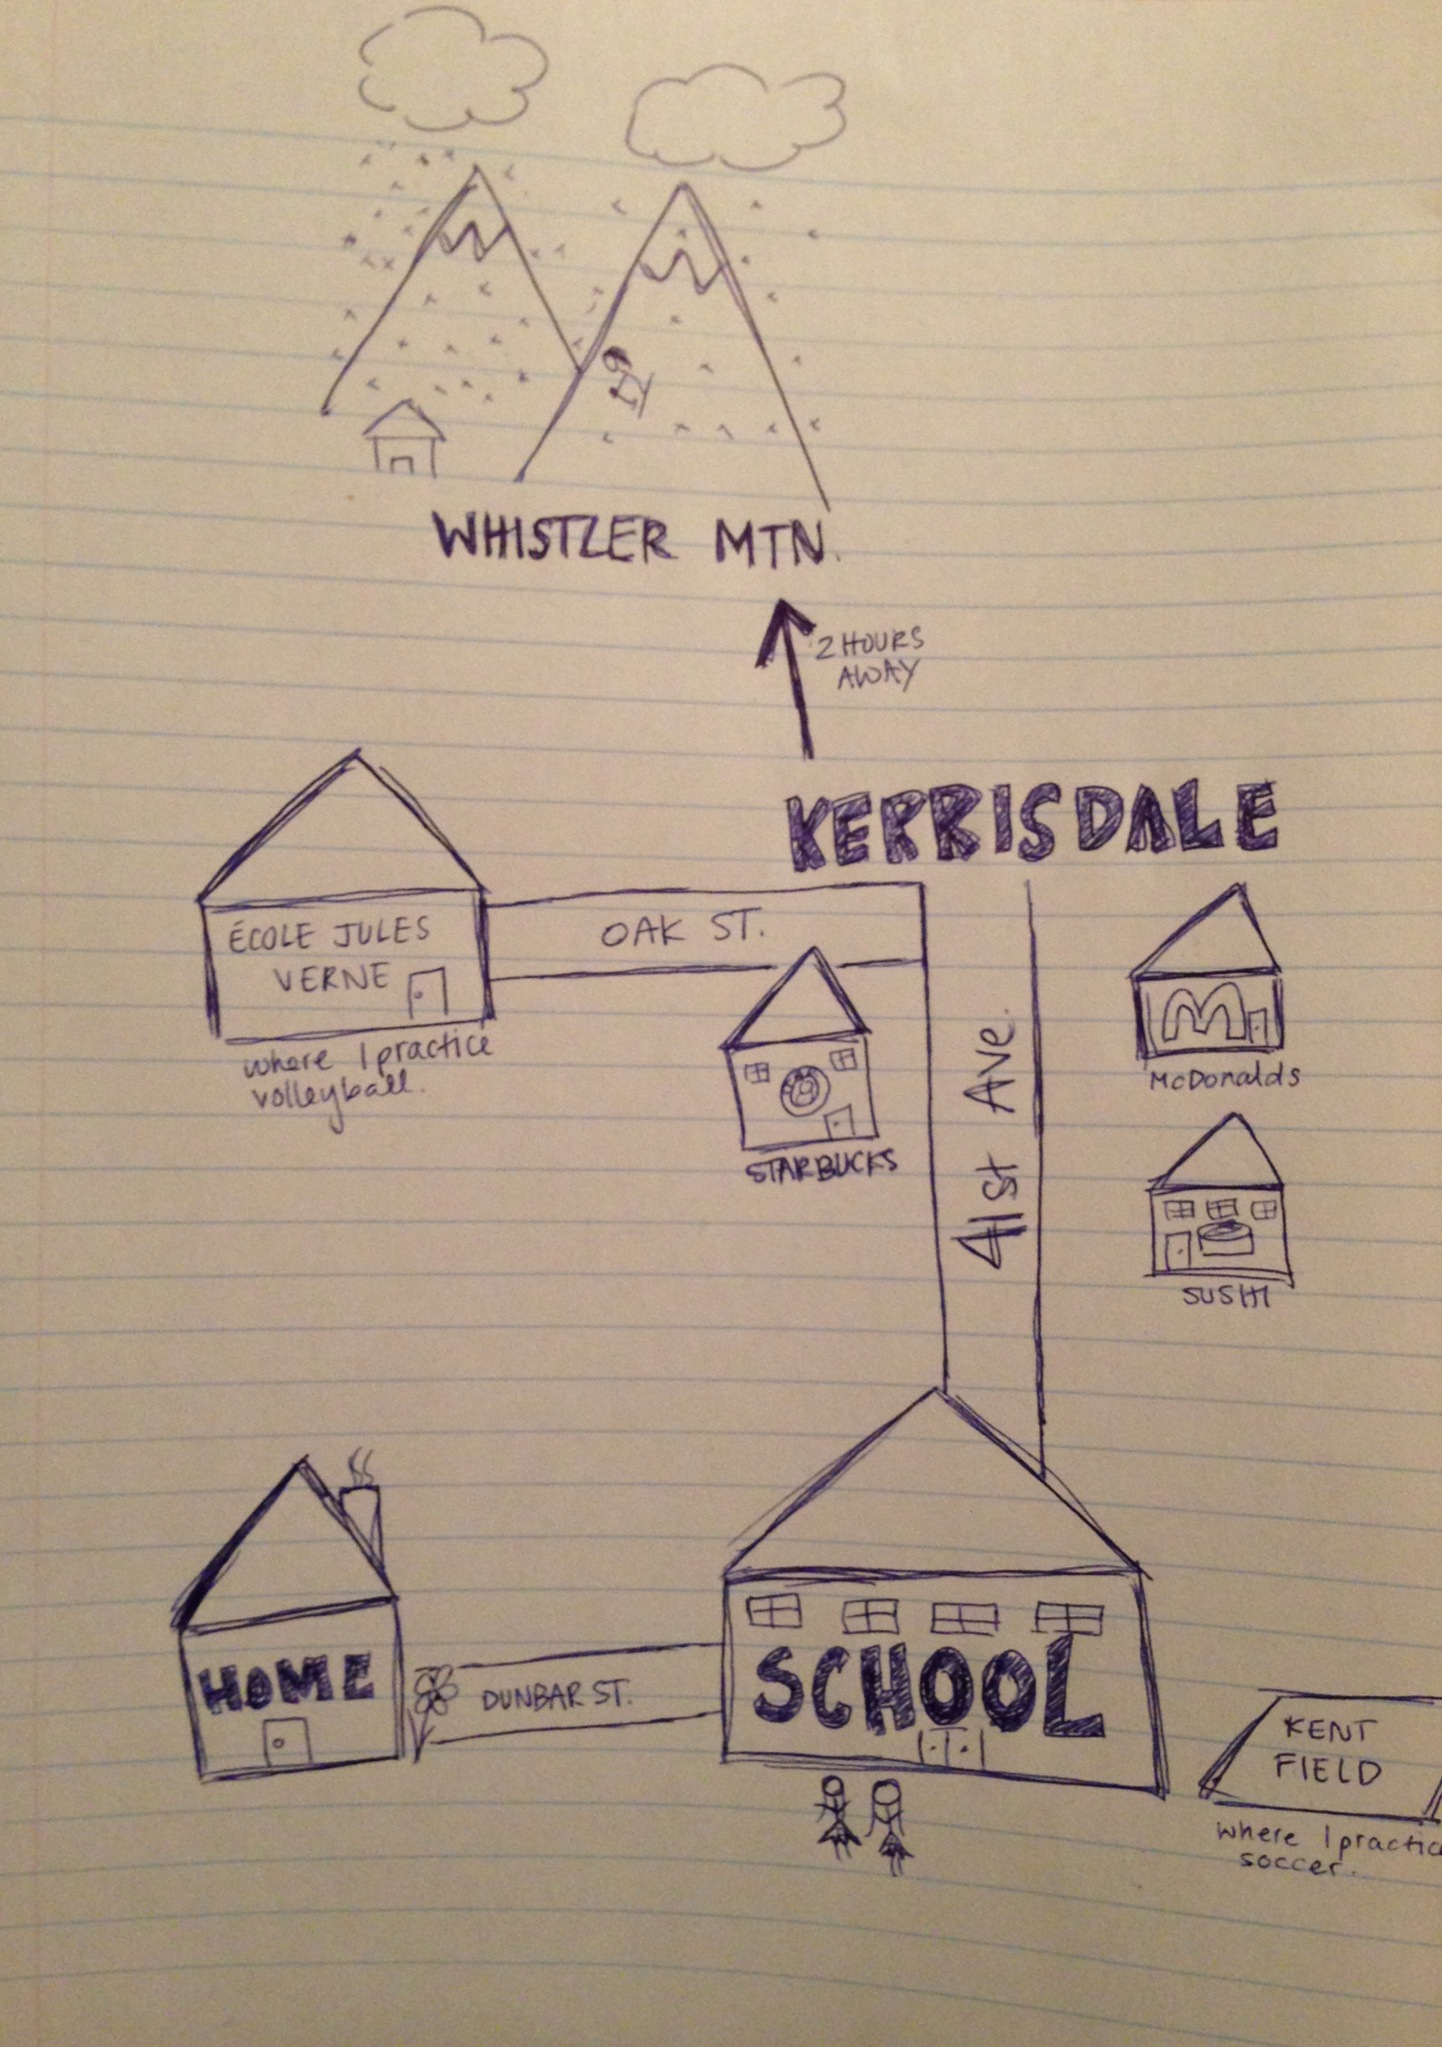 WHISTLER MTN.
2 HOURS
AWAY
KERRISDALE
ÉCOLE JULES
VERNE
where I practice
volleyball.
OAK ST.
STARBUCKS
41st Ave.
M
McDonalds
SUSHI
HOME
DUNBAR ST.
SCHOOL
KENT
FIELD
where I practice
soccer.